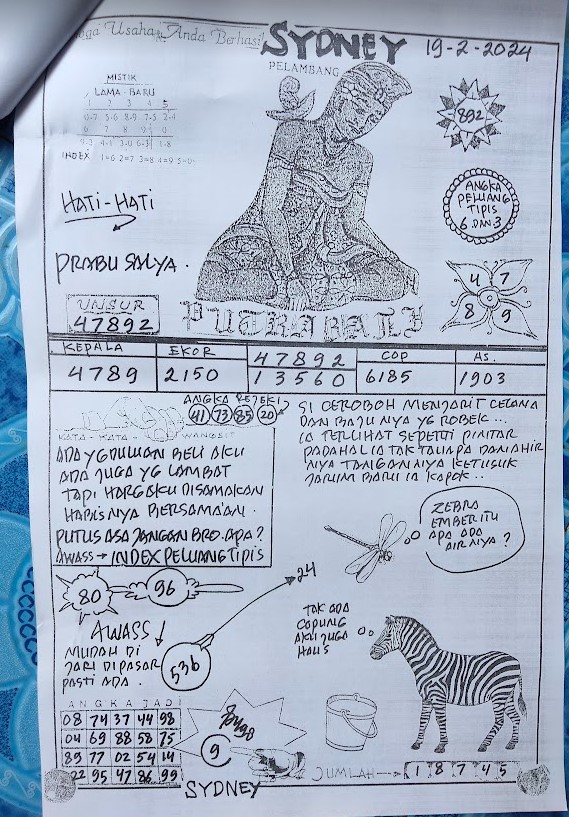 Usaha Anda Berhasil
SYDNEY
19-2-2024
PELAMBANG
MISTIK
LAMA - BARU
1 2 3 4 5
0-7 5-6 8-9 7-5 2-4
6 7 8 9 0
INDEX 1=6 2=7 3=8 4=9 5=0
892
HATI-HATI
ANGKA
PELUANG
TIPIS
6 DAN 3
PRABU SALYA.
4 7
8 9
UNSUR
47892
PUTRA BALI
KEPALA EKOR 47892 COP AS.
4789 2150 13560 6185 1903
ANGKA REJEKI
41 73 85 20
KATA - KATA - WANGSIT
ADA YG DULUAN BELI AKU
ADA JUGA YG LAMBAT
TAPI HARGAKU DISAMAKAN
HARUSNYA BERSAMAAN.
PUTUS ASA JANGAN BRO. APA?
AWASS → INDEX PELUANG TIPIS
SI CEROBOH MENJARIT CELANA
DAN BAJUNYA YG ROBEK...
IA TERLIHAT SEPERTI PINTAR
PADAHAL IA TAK TAU APA DAN AHIR
NYA TANGANNYA KETUSUK
JARUM BARU IA KAPOK..
ZEBRA
EMBER ITU
APA ADA
AIRNYA ?
80
96
24
AWASS
MUDAH DI
CARI DIPASAR
PASTI ADA.
536
TAK ADA
CAPUNG
AKU JUGA
HAUS
ANGKA JADI
08 74 37 44 98
04 69 88 58 75
89 77 02 54 14
22 95 47 86 99
9
SYDNEY
JUMLAH → 1 8 7 4 5